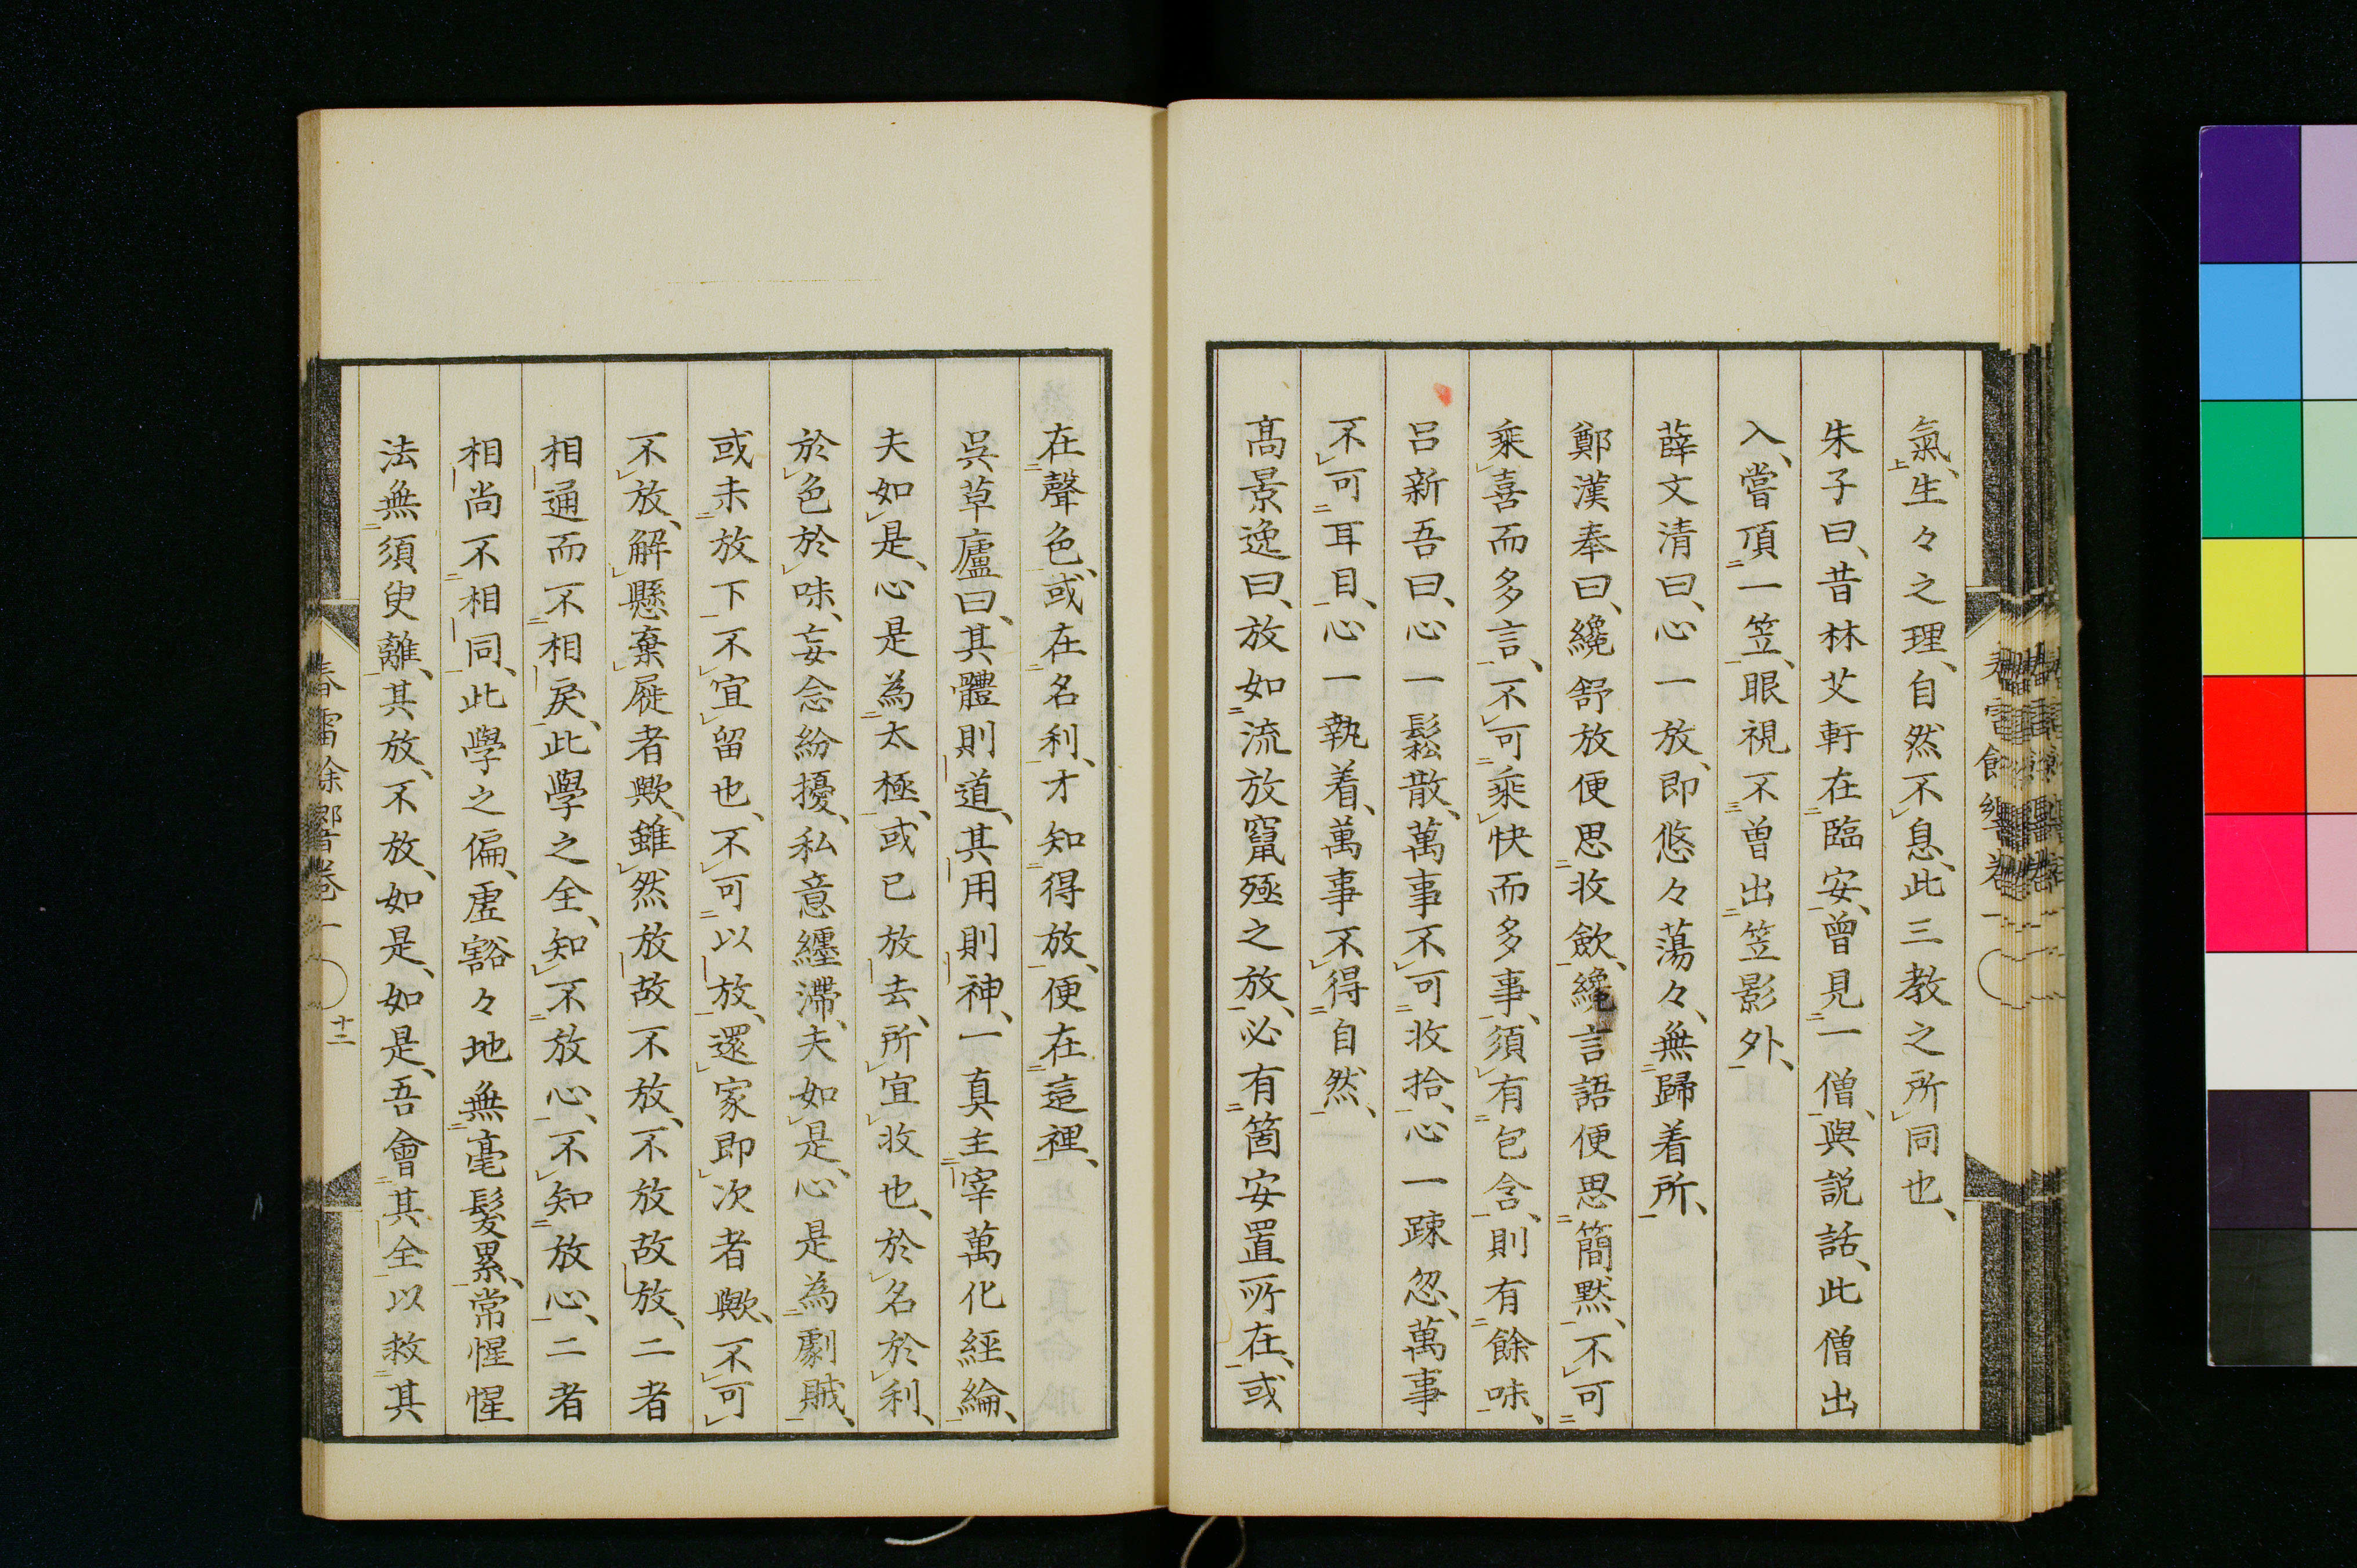 氣、生々之理、自然不息、此三教之所同也、
朱子曰、昔林艾軒在臨安、曾見一僧、與説話、此僧出
入、嘗頂一笠、眼視不曾出笠影外、
薛文清曰、心一放、即悠々蕩々、無歸着所、
鄭漢奉曰、纔舒放便思收歛、纔言語便思簡默、不可
乘喜而多言、不可乘快而多事、須有包含、則有餘味、
呂新吾曰、心一鬆散、萬事不可收拾、心一踈忽、萬事
不可耳目、心一執着、萬事不得自然、
髙景逸曰、放如流放竄殛之放、必有箇安置所在、或
在聲色、或在名利、才知得放、便在這裡、
吳草廬曰、其體則道、其用則神、一真主宰萬化經綸、
夫如是、心是為太極、或已放去、所宜收也、於名於利、
於色於味、妄念紛擾、私意纏滯、夫如是、心是為劇賊、
或未放下、不宜留也、不可以放、還家即次者歟、不可
不放、解懸棄屣者歟、雖然放故不放、不放故放、二者
相通而不相戾、此學之全、知不放心、不知放心、二者
相尚不相同、此學之偏、虛豁々地無毫髮累、常惺惺
法無須臾離、其放、不放、如是、如是、吾會其全以救其
春雷餘響卷一
十二